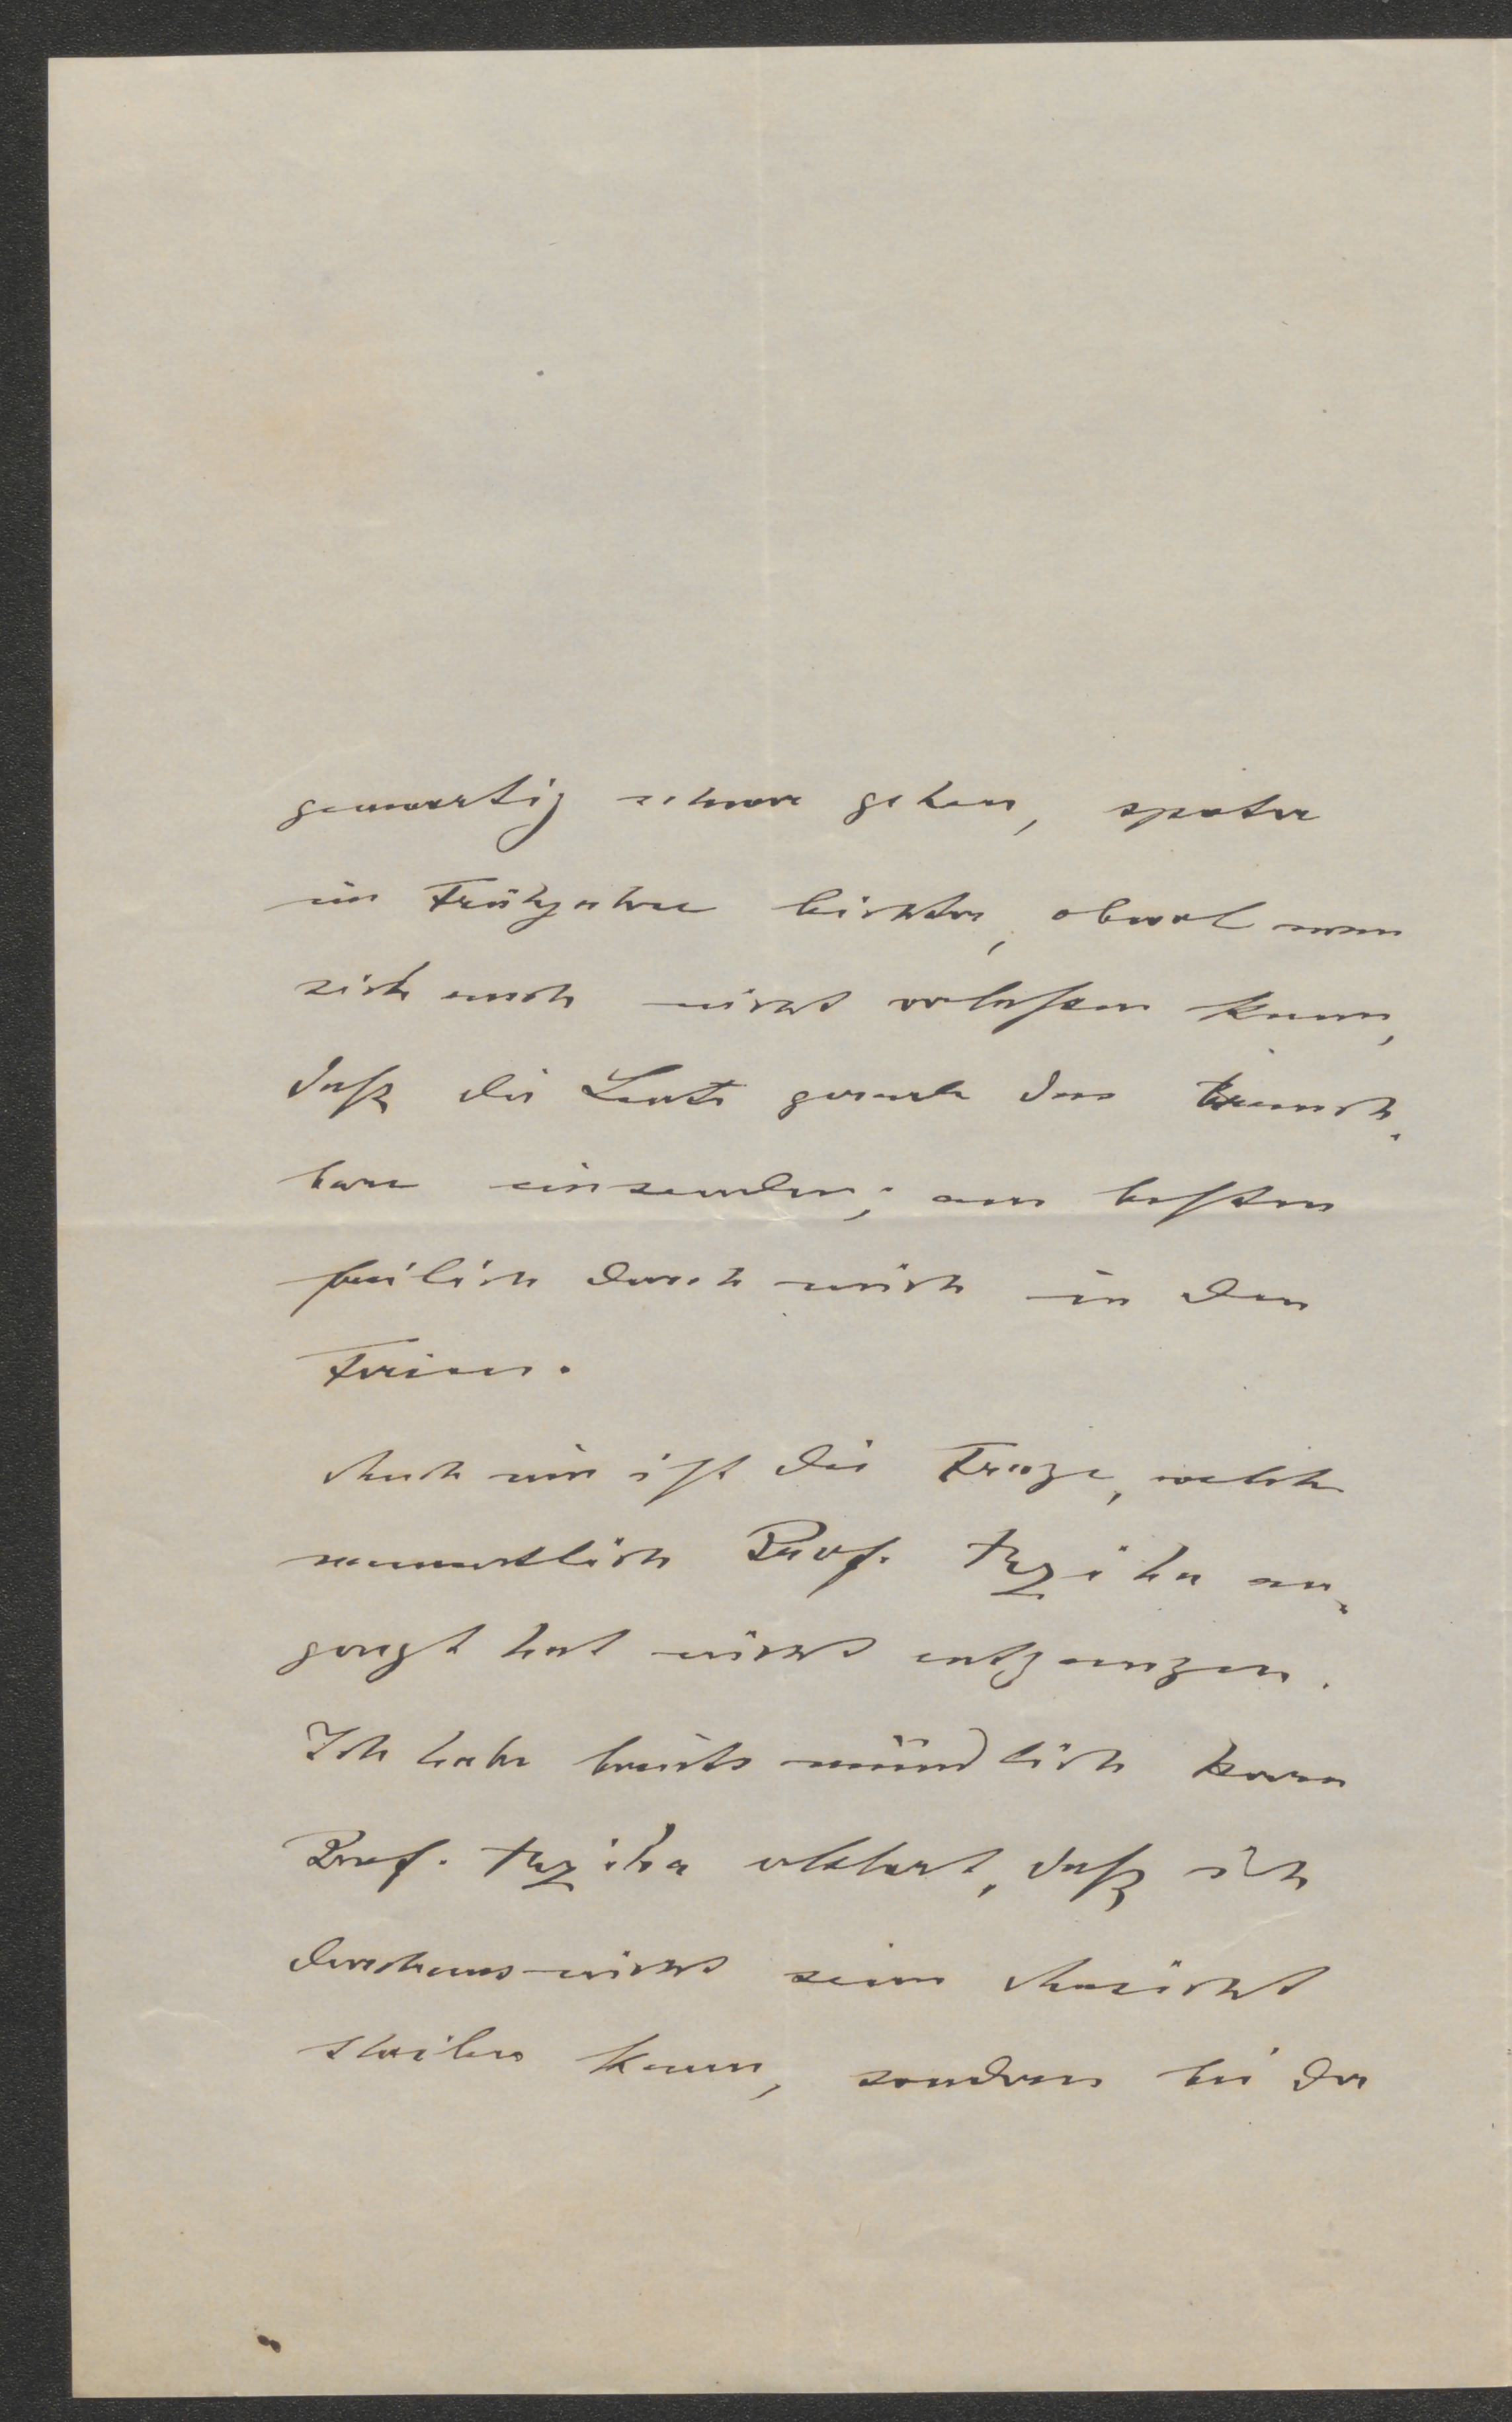 genwärtig schwer gehen, später
im Frühjahre leichter, obwol man
sich auch nicht verlassen kann,
daß die Leute gerade das brauch-
bare einsenden; am besten
freilich durch mich in den
Ferien.
Auch mir ist die Frage, welche
namentlich Prof. Rziha an-
geregt hat nicht entgangen.
Ich habe bereits mündlich Herrn
Prof. Rziha erklärt, daß ich
durchaus nicht seine Ansicht
theilen kann, sondern bei der